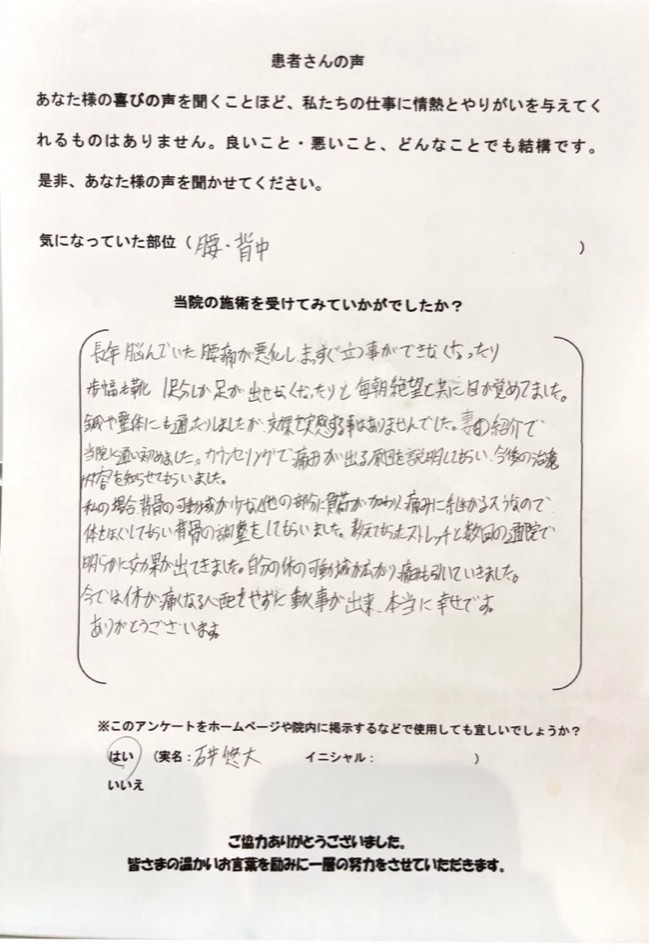 患者さんの声
あなた様の喜びの声を聞くことほど、私たちの仕事に情熱とやりがいを与えてく
れるものはありません。良いこと・悪いこと、どんなことでも結構です。
是非、あなた様の声を聞かせてください。
気になっていた部位（腰・背中）
当院の施術を受けてみていかがでしたか？
長年悩んでいた腰痛が悪化し、まっすぐ立つ事ができなくなったり
歩幅も靴1足分しか足が出せなくなったりと毎朝絶望と共に目が覚めてました。
鍼や整体にも通ったりしましたが、効果を実感する事はありませんでした。妻の紹介で
当院に通い初めました。カウンセリングで痛みが出る原因を説明してもらい、今後の治療
内容を知らせてもらいました。
私の場合背骨の可動域が少なく他の部分に負荷がかかり痛みに繋がるようなので
体をほぐしてもらい背骨の調整をしてもらいました。教えてもらったストレッチと数回の通院で
明らかに効果が出てきました。自分の体の可動域が広がり痛みも引いていきました。
今では体が痛くなる心配をせずに動く事が出来、本当に幸せです。
ありがとうございます。
※このアンケートをホームページや院内に掲示するなどで使用しても宜しいでしょうか？
はい （実名：石井悠大 イニシャル： ）
いいえ
ご協力ありがとうございました。
皆さまの温かいお言葉を励みに一層の努力をさせていただきます。